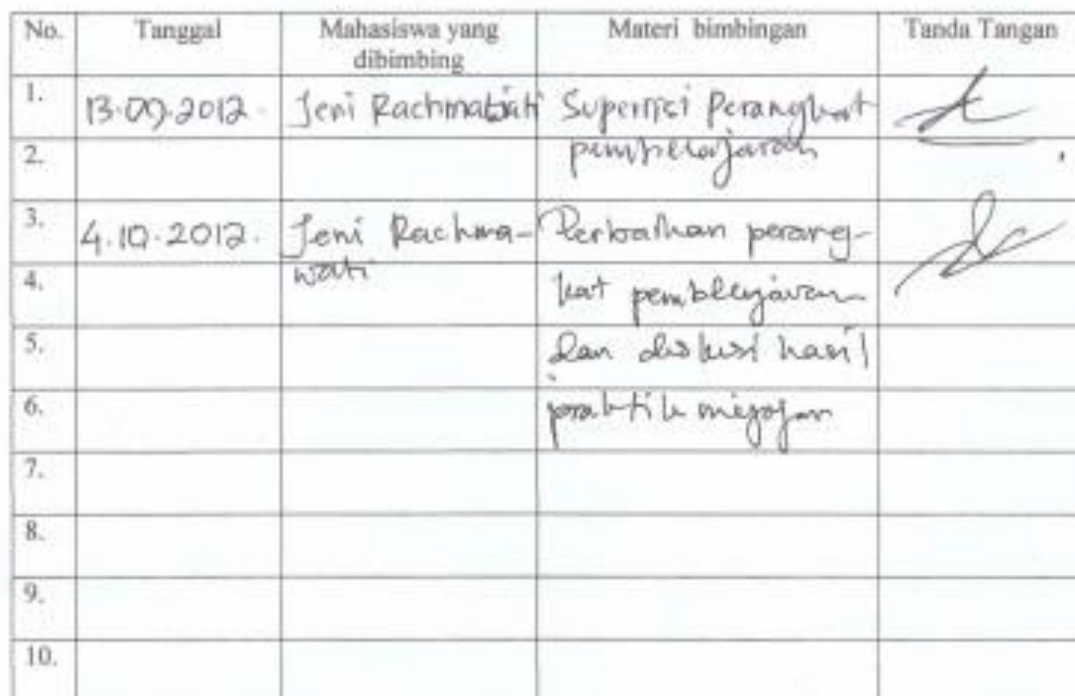 No. Tanggal Mahasiswa yang dibimbing Materi bimbingan Tanda Tangan
1. 13.09.2012. Jeni Rachmawati Supervisi Perangkat
2. pembelajaran
3. 4.10.2012. Jeni Rachma- Perbaikan perang-
4. wati kat pembelajaran
5. dan diskusi hasil
6. praktik mengajar
7.
8.
9.
10.